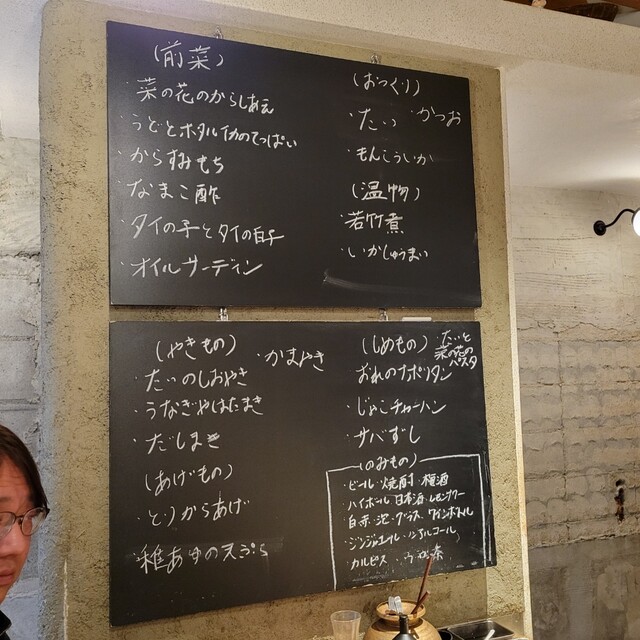 (前菜)
・菜の花のからしあえ
・うどとホタルイカのてっぱい
・からすみもち
・なまこ酢
・タイの子とタイの白子
・オイルサーディン
(おつくり)
・たい ・かつお
・もんこういか
(温物)
・若竹煮
・いかしゅうまい
(やきもの)
・かまやき
・たいのしおやき
・うなぎやはたまき
・だしまき
(あげもの)
・とりからあげ
・稚あゆの天ぷら
(しめもの)
たいと
菜の花の
パスタ
おれのナポリタン
・じゃこチャーハン
・サバずし
(のみもの)
・ビール・焼酎・梅酒
・ハイボール・日本酒・レモンサワー
・白・赤・泡・グラス・ワインボトル
・ジンジャエール・ノンアルコール
・カルピス